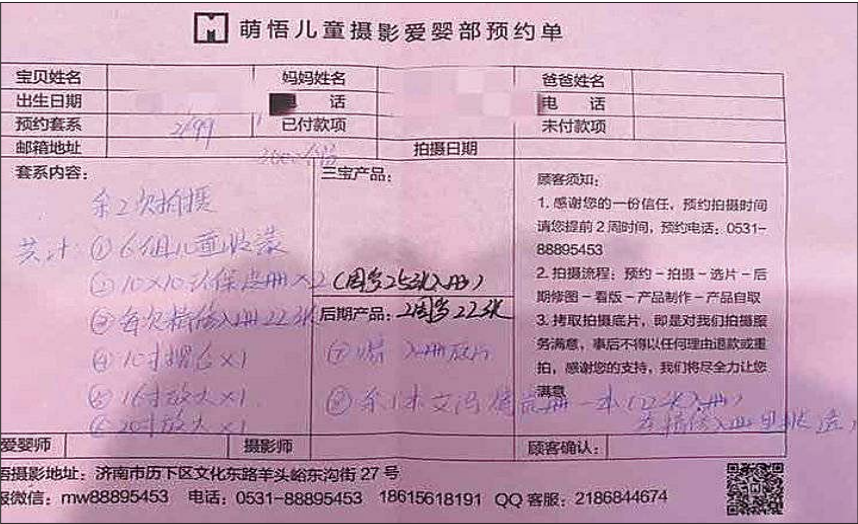 萌悟儿童摄影爱婴部预约单
宝贝姓名 妈妈姓名 爸爸姓名
出生日期 话 电 话
预约套系 2199 已付款项 未付款项
邮箱地址 拍摄日期
套系内容: 三宝产品: 顾客须知:
余2次拍摄
共计: ①6组儿童服装
②10×10环保 册×2 (周岁25张入册)
③每次精修入册22张
④10寸摆台×1
⑤16寸放大×1
⑥20寸放大×1
后期产品: 2周岁22张
⑦ 入册底片
⑧余1本 册一本(22张入册)
1. 感谢您的一份信任,预约拍摄时间
请您提前2周时间,预约电话:0531-
88895453
2. 拍摄流程:预约-拍摄-选片-后
期修图-看版-产品制作-产品自取
3. 拷取拍摄底片,即是对我们拍摄服
务满意,事后不得以任何理由退款或重
拍,感谢您的支持,我们将尽全力让您
满意
爱婴师 摄影师 顾客确认:
悟摄影地址:济南市历下区文化东路羊头峪东沟街27号
服微信:mw88895453 电话:0531-88895453 18615618191 QQ客服:2186844674